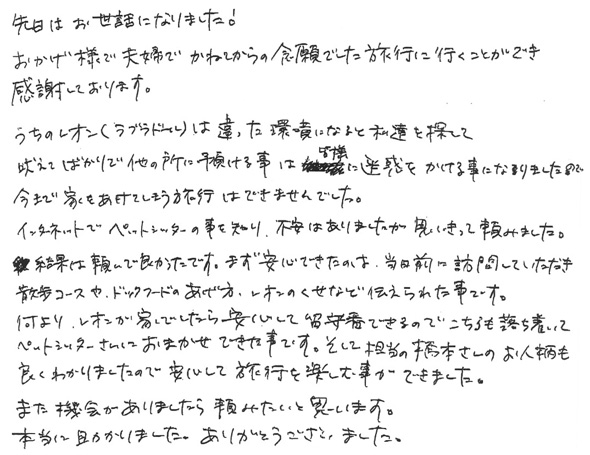 先日はお世話になりました!
おかげ様で夫婦でかねてからの念願でした旅行に行くことができ
感謝しております。
うちのレオン(ラブラドール)は違った環境になると私達を探して
吠えてばかりで他の所に預ける事は皆様に迷惑をかける事になりましたので
今まで家をあけてしまう旅行はできませんでした。
インターネットでペットシッターの事を知り、不安はありましたが思いきって頼みました。
結果は頼んで良かったです。まず安心できたのは、当日前に訪問していただき
散歩コースや、ドックフードのあげ方、レオンのくせなど伝えられた事です。
何より、レオンが家でしたら安心して留守番できるのでこちらも落ち着いて
ペットシッターさんにおまかせできた事です。そして担当の橋本さんのお人柄も
良くわかりましたので安心して旅行を楽しむ事ができました。
また機会がありましたら頼みたいと思います。
本当に助かりました。ありがとうございました。